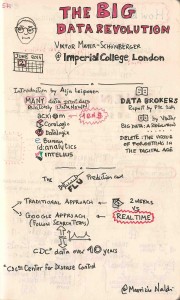 THE BIG
DATA REVOLUTION
VIKTOR MAYER-SCHÖNBERGER
@ Imperial College, London
JUNE 2014
Introduction by Asja
MANY data providers
acxiom
CoreLogic
Datalogix
eBureau
id:analytics
INTELIUS
DATA BROKERS
Report by FTC
by Viktor
BIG DATA: A REVOLUTION
DELETE: THE VIRTUE
OF FORGETTING IN
THE DIGITAL AGE
The FLU Prediction
TRADITIONAL APPROACH → 2 WEEKS
VS
GOOGLE APPROACH → REALTIME
CDC* data over 10 YEARS
*CDC: Center for Disease Control
@Maurizio Naldi